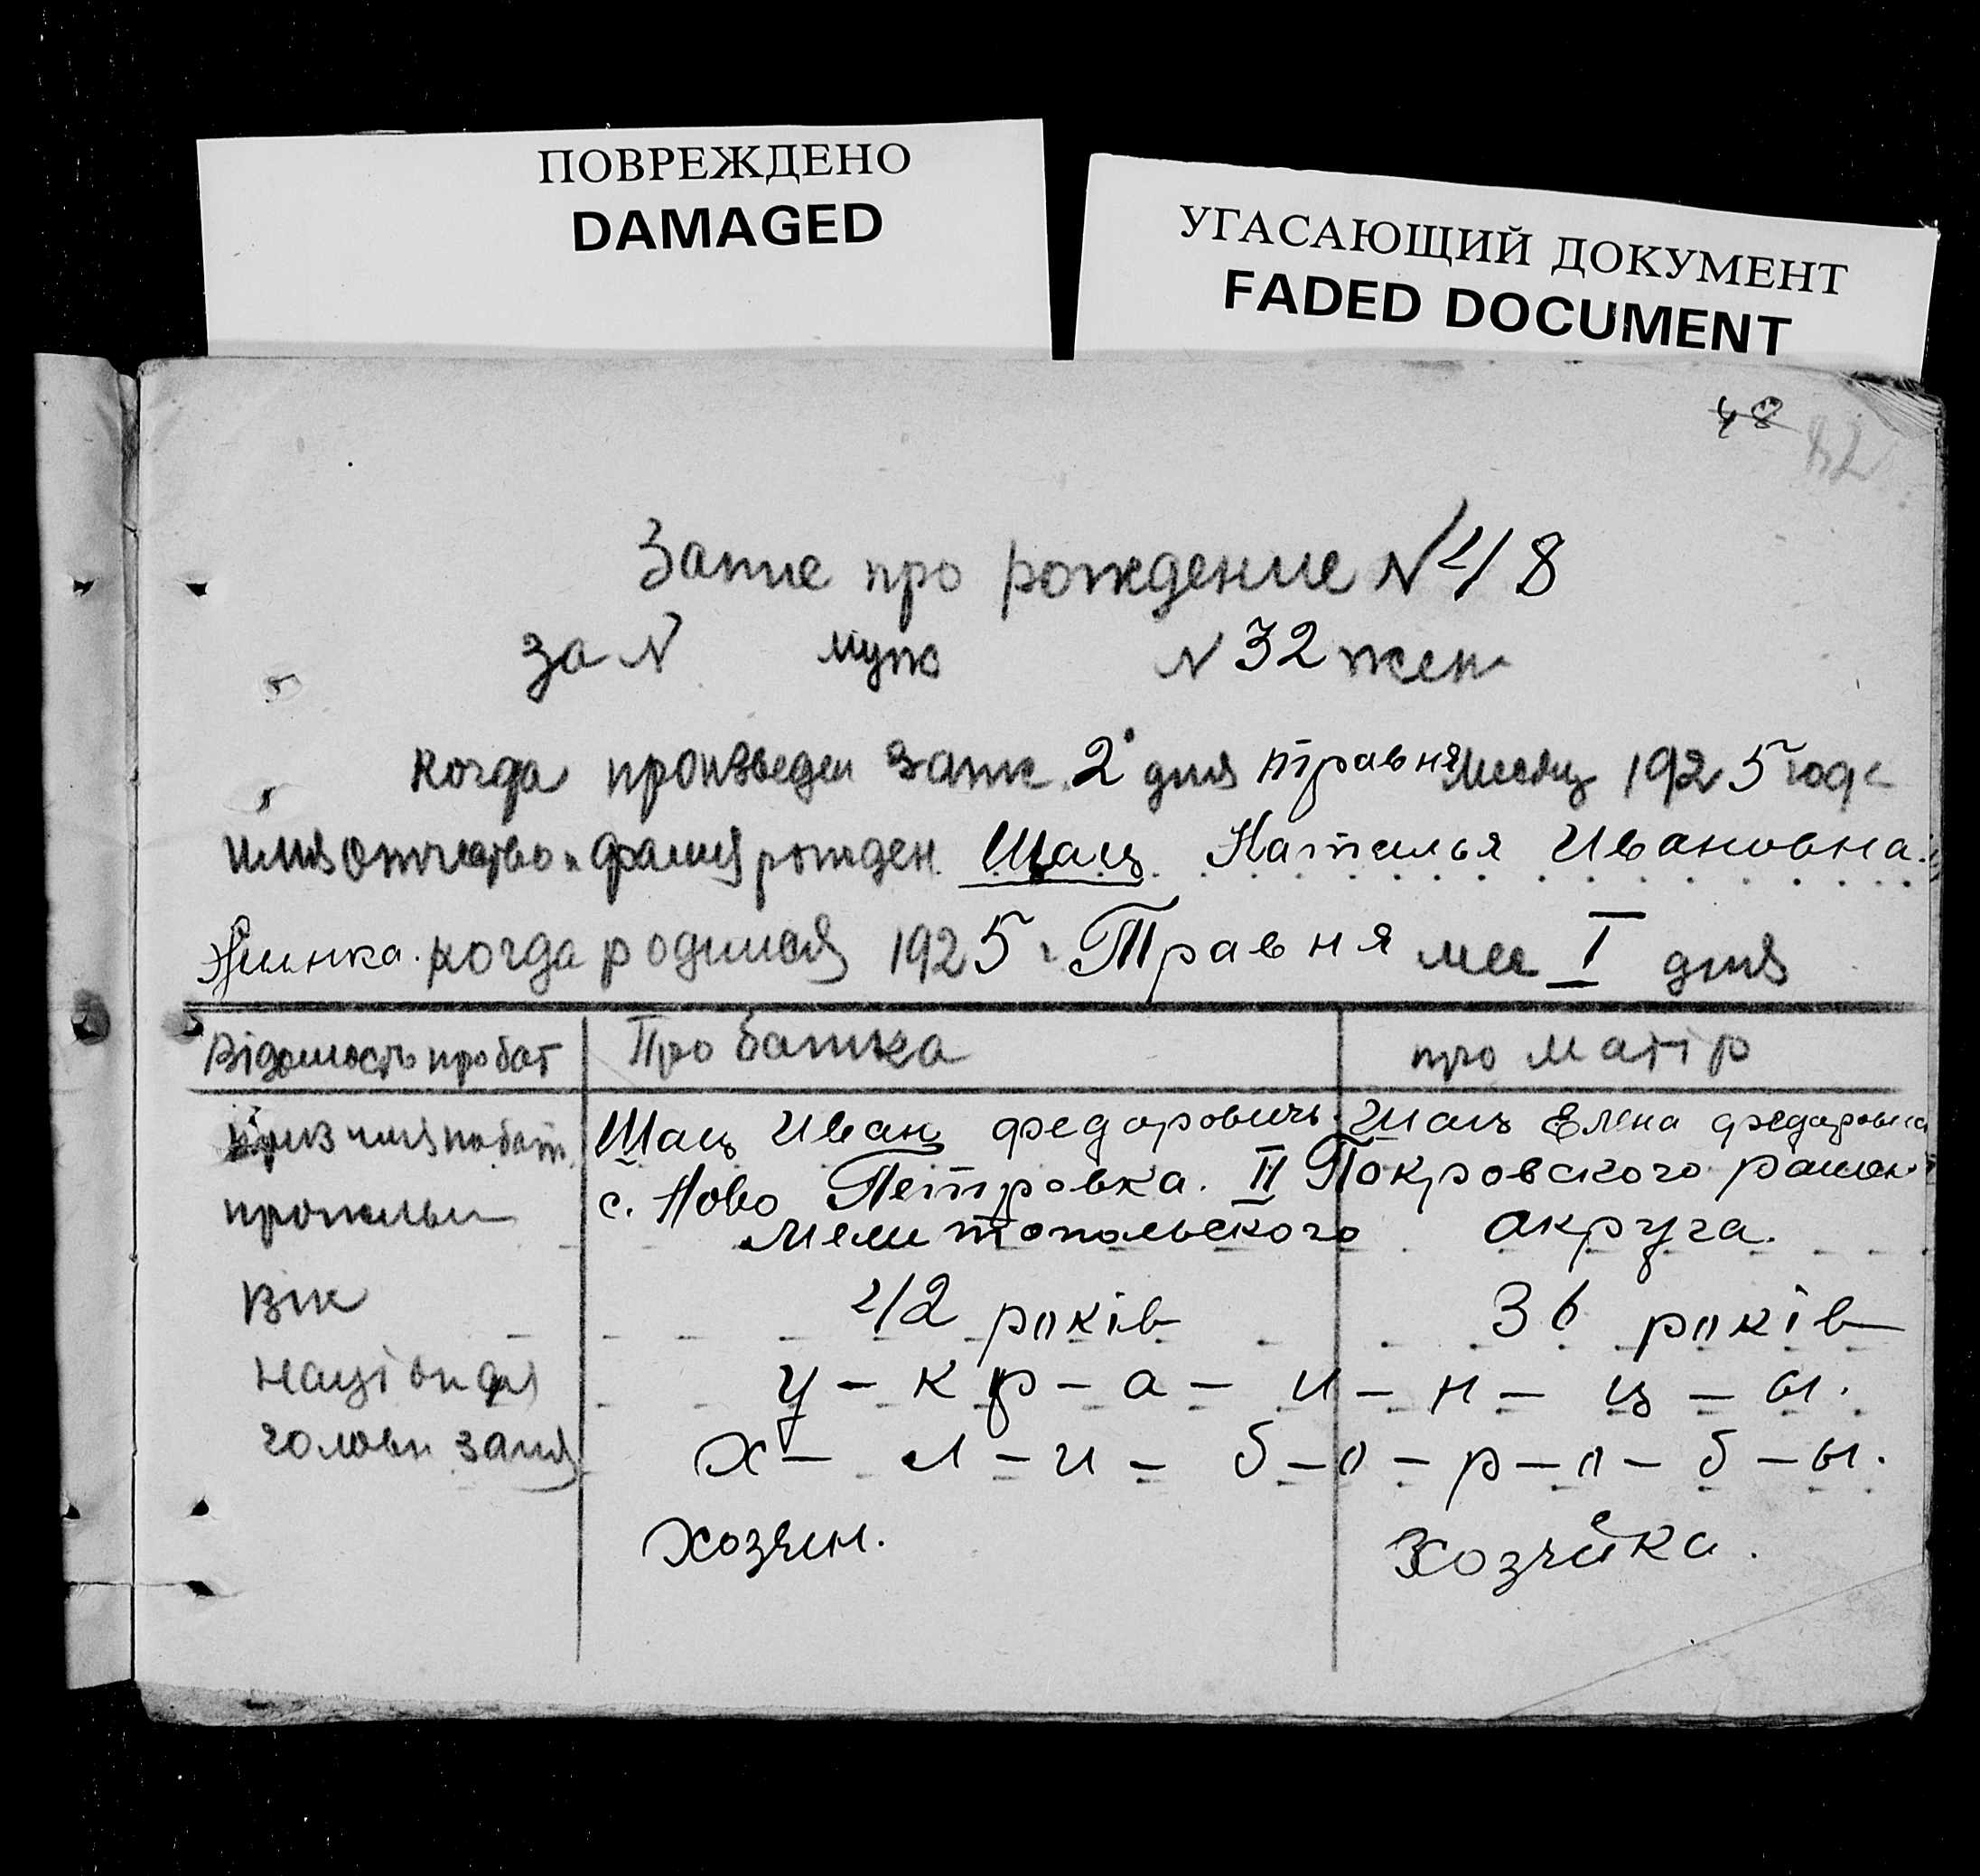 ПОВРЕЖДЕНО
DAMAGED
УГАСАЮЩИЙ ДОКУМЕНТ
FADED DOCUMENT
48
Запис про рождение № 48
за № муж № 32 жен
когда произведен запис 2 дня травня месяц 1925 года
имя отчество и фамия рожден Шац Наталья Ивановна
Жинка. когда родился 1925 г Травня мес I дня
Відомость про бат Про батька про матір
приз имя побат Шац Иван Федаровичь Шац Елена Федаровна
с. Ново Петровка. II Покровского раион
Мелитопальского акруга.
Вік 42 років 36 років
у-кр-а-и-н-ц-ы.
головн заня х-л-и-б-о-р-о-б-ы.
Хозяин. Хозяйка.